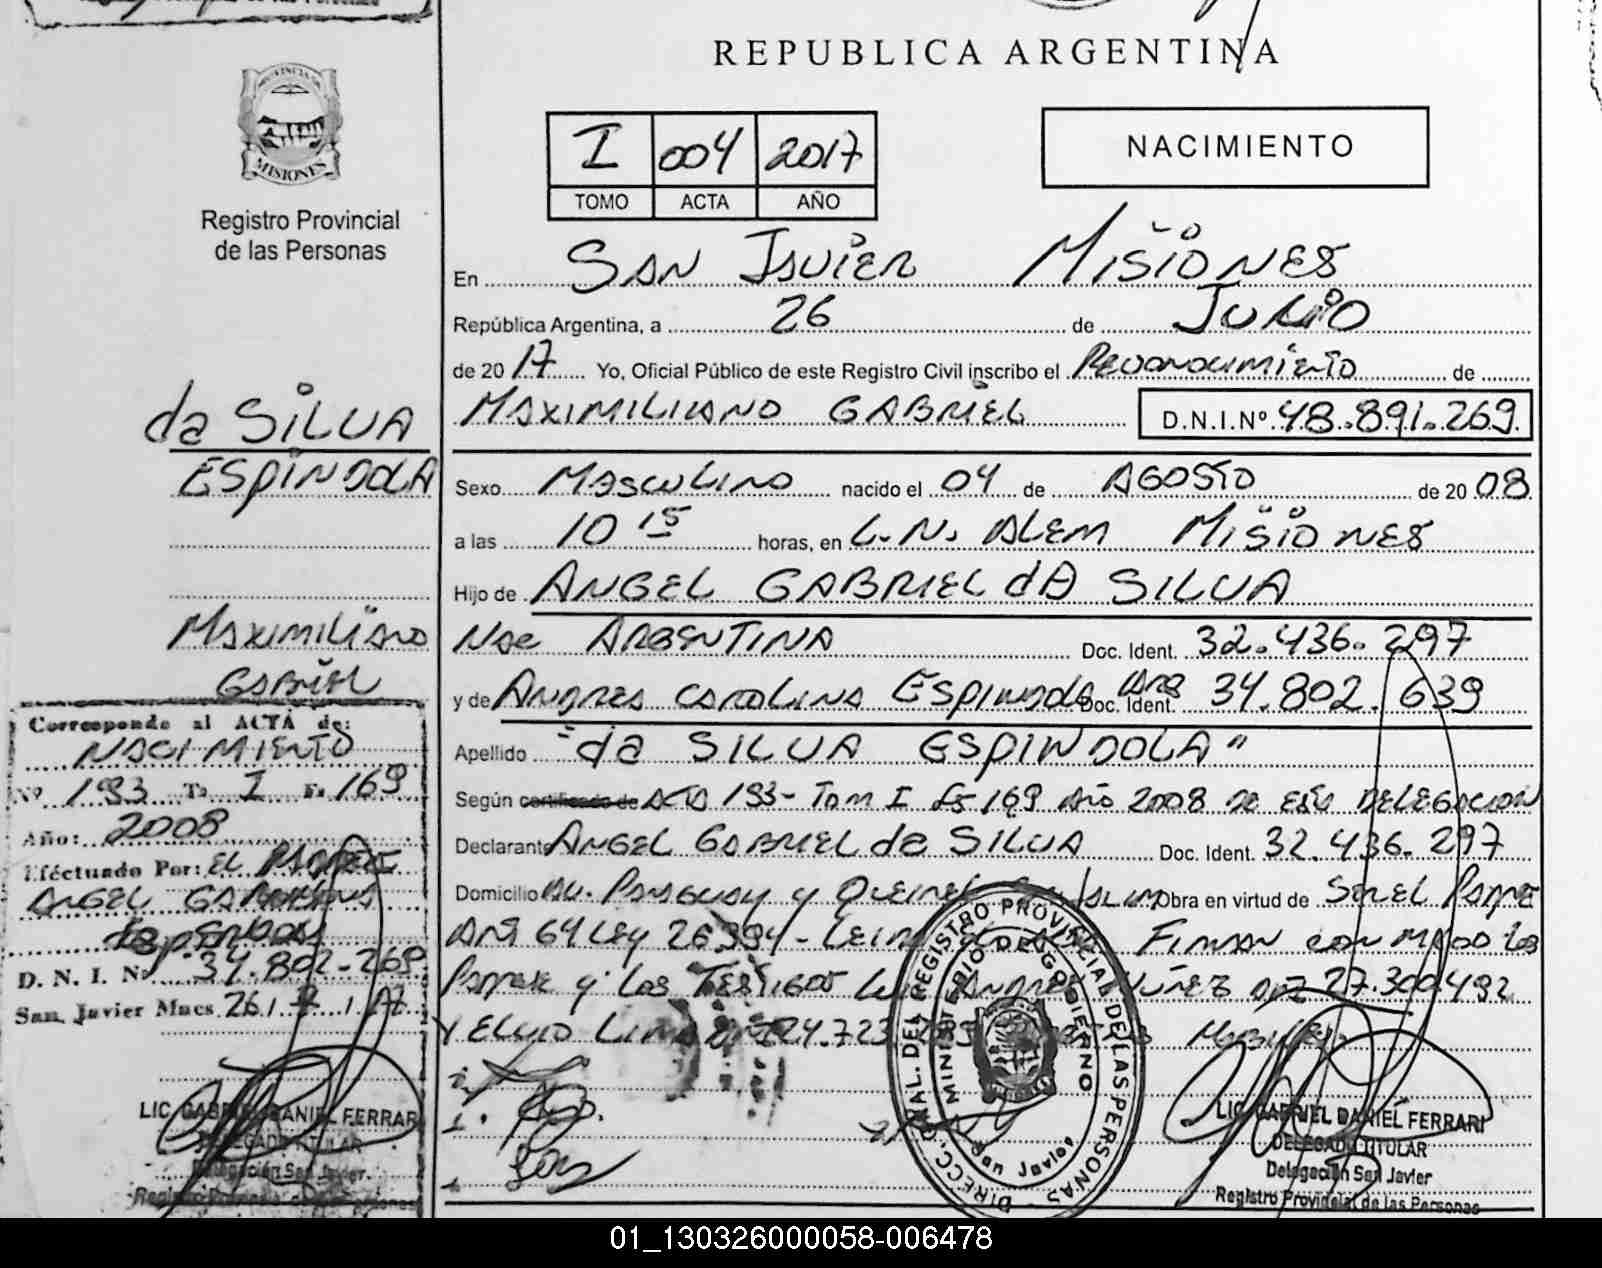 REPUBLICA ARGENTINA
PROVINCIA DE
MISIONES
Registro Provincial
de las Personas
I 004 2017
TOMO ACTA AÑO
NACIMIENTO
En SAN JAVIER MISIONES
República Argentina, a 26 de JUNIO
de 2017 Yo, Oficial Público de este Registro Civil inscribo el Reconocimiento de
MAXIMILIANO GABRIEL D.N.I.Nº 48.891.269
Sexo MASCULINO nacido el 04 de AGOSTO de 2008
a las 10 15 horas, en L.N. ALEM MISIONES
Hijo de ANGEL GABRIEL dA SILVA
Nac ARGENTINA Doc. Ident. 32.436.297
y de ANDREA CAROLINA ESPINDOLA ARG Doc. Ident. 34.802.639
Apellido "da SILVA ESPINDOLA"
Según certificado de ACTA 193- Tom I Fs 169 Año 2008 DE ESTA DELEGACION
Declarante ANGEL GABRIEL da SILVA Doc. Ident. 32.436.297
Domicilio AV. PARAGUAY y Obra en virtud de SER EL PADRE
64 Ley FIRMAN con MIGO los
y Los TESTIGOS NUÑEZ 27.300.492
Y ELVIO LIMA 24.723
da SILVA
ESPINDOLA
MAXIMILIANO
GABRIEL
Corresponde al ACTA de:
NACIMIENTO
Nº 193 Tº I Fº 169
Año: 2008
Eféctuado Por: EL PADRE
ANGEL
D. N. I. Nº 34.802-269
San Javier Mnes 26
LIC. GABRIEL DANIEL FERRARI
DELEGADO TITULAR
Delegación San Javier
Registro Provincial de las Personas
DIRECC. GRAL. DEL REGISTRO PROVINCIAL DE LAS PERSONAS
MINISTERIO DE GOBIERNO
San Javier
LIC. GABRIEL DANIEL FERRARI
DELEGADO TITULAR
Delegación San Javier
Registro Provincial de las Personas
01_130326000058-006478